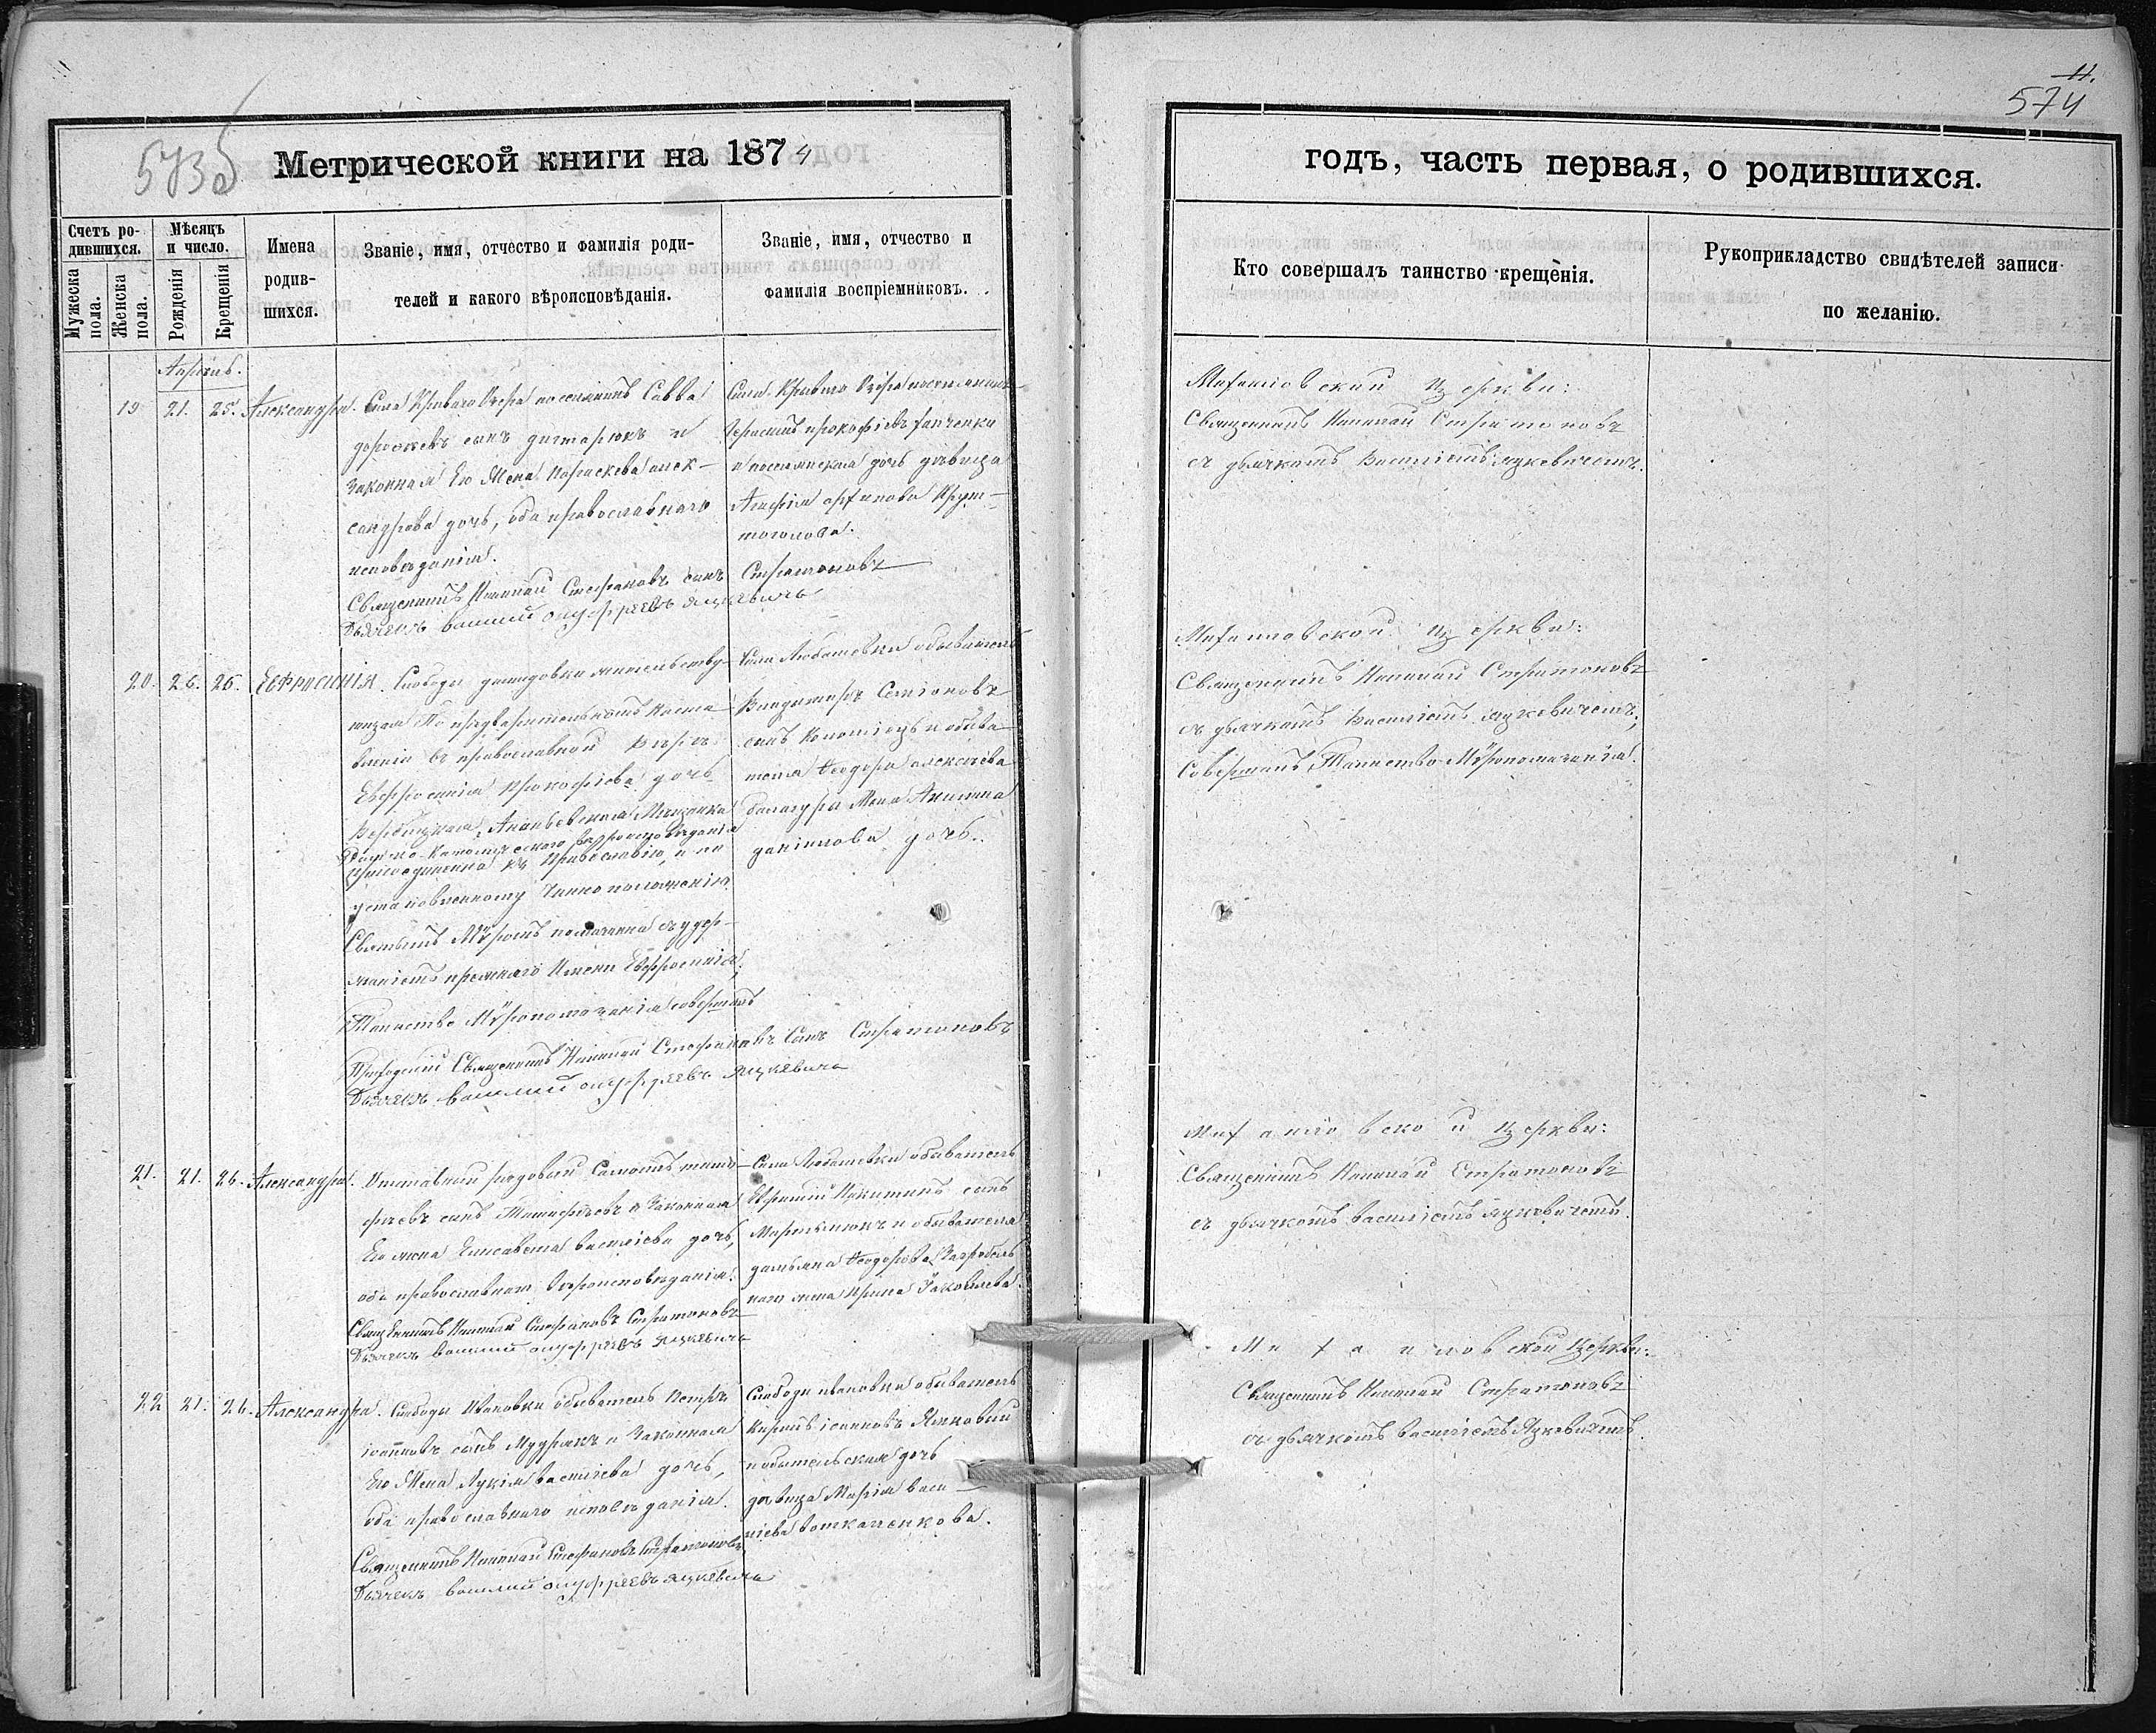 573б
Метрической книги на 1874
Счетъ ро-
дившихся.
Мужеска
пола.
Женска
пола.
Мѣсяцъ
и число.
Рожденія
Крещенія
Имена
родив-
шихся.
Званіе, имя, отчество и фамилія роди-
телей и какого вѣроисповѣданія.
Званіе, имя, отчество и
фамилія воспріемниковъ.
Апрѣль.
19 21. 25. Александра. Села Криваго Озера поселянинъ Савва
сынъ и
законная Его Жена Параскева Алек-
сандрова дочь, оба православнаго
исповѣданія.
Священникъ Николай Стефановъ сынъ Стратоновъ
Дьячекъ Василий Онуфріевъ Яцкевичъ
Села Криваго Озера поселянинъ
Герасимъ Прокофіевъ
и поселянская дочь дѣвица
Агафія Крут-
оголова.
20. 26. 26. Ефросинія. Слободы
по предварительномъ наста-
вленіи въ православной Вѣрѣ
Евфросинія Прокофіева дочь
Вербицкая, Ананьевская Мѣщанка
Римско-Католическаго вѣроисповѣданія
присоединена къ Православію, и по
установленному чиноположенію
Святымъ Мѵромъ помазана съ удер-
жаніемъ прежняго Имени Евфросинія;
Таинство Мѵропомазанія совершалъ
Приходскій Священникъ Николай Стефановъ Сынъ Стратоновъ
Дьячекъ Василий Онуфріевъ Яцкевичъ
Села Любашевки обыватель
Владимиръ Семіоновъ
сынъ и обыва-
теля Ѳеодора Алексѣева
Балагуры Жена Акилина
Даніилова дочь.
21. 21. 26. Александра. Отставный рядовый
сынъ Тимофѣевъ и Законная
Его жена Елисавета Василіева дочь,
оба православнаго вѣроисповѣданія.
Священникъ Николай Стефановъ Стратоновъ
Дьячекъ Василий Онуфріевъ Яцкевичъ
Села Любашевки обыватель
Никитинъ сынъ
и обывателя
Даміана Ѳеодорова
жена Ирина Іаковлева.
22 21. 26. Александра. Слободы Ивановки обыватель Петръ
Іоанновъ сынъ Мудракъ и Законная
Его Жена Лукія Василіева дочь,
оба православнаго исповѣданія.
Священникъ Николай Стефановъ Стратоновъ
Дьячекъ Василий Онуфріевъ Яцкевичъ
Слободы Ивановки обыватель
Кирилъ Іоанновъ
и обывательская дочь
дѣвица Марія Васи-
ліева
11.
574
годъ, часть первая, о родившихся.
Кто совершалъ таинство крещенія.
Рукоприкладство свидѣтелей записи
по желанію.
Михаиловской церкви:
Священникъ Николай Стратоновъ
съ дьячкомъ Василіемъ Яцкевичемъ.
Михаиловской церкви:
Священникъ Николай Стратоновъ
съ дьячкомъ Василіемъ Яцкевичемъ;
Совершалъ Таинство Мѵропомазанія.
Михаиловской церкви:
Священникъ Николай Стратоновъ
съ дьячкомъ Василіемъ Яцкевичемъ.
Михаиловской церкви:
Священникъ Николай Стратоновъ
съ дьячкомъ Василіемъ Яцкевичемъ.